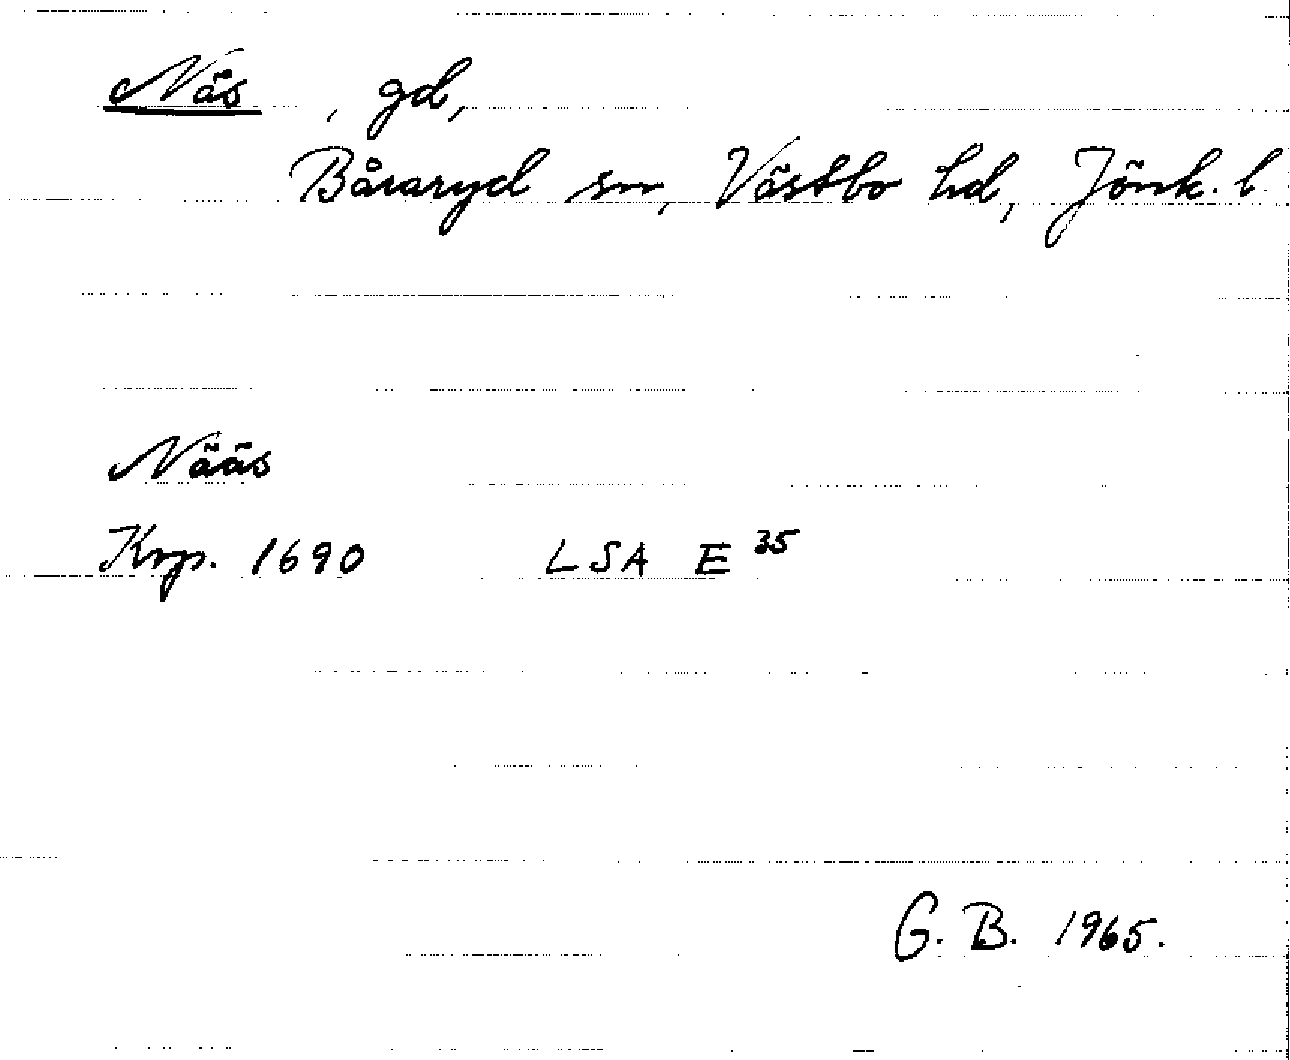 Näs, gd,
Båraryd sn, Västbo hd, Jönk. l.
Nääs
Krp. 1690 LSA E 35
G. B. 1965.